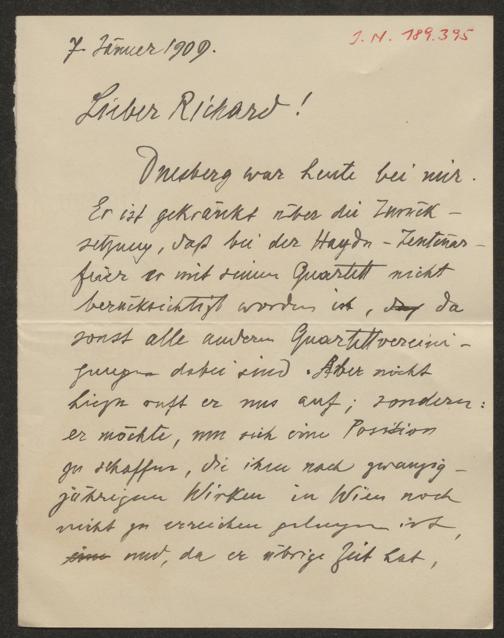 7. Jänner 1909.
J. N. 189.395
Lieber Richard!
Duesberg war heute bei mir.
Er ist gekränkt über die Zurück-
setzung, daß bei der Haydn-Zentenar-
feier er mit seinem Quartett nicht
berücksichtigt worden ist, da
sonst alle anderen Quartettvereini-
gungen dabei sind. Aber nicht
ruft er uns auf; sondern:
er möchte, um sich eine Position
zu schaffen, die ihm nach zwanzig-
jährigem Wirken in Wien noch
nicht zu erreichen gelungen ist,
und, da er übrige Zeit hat,